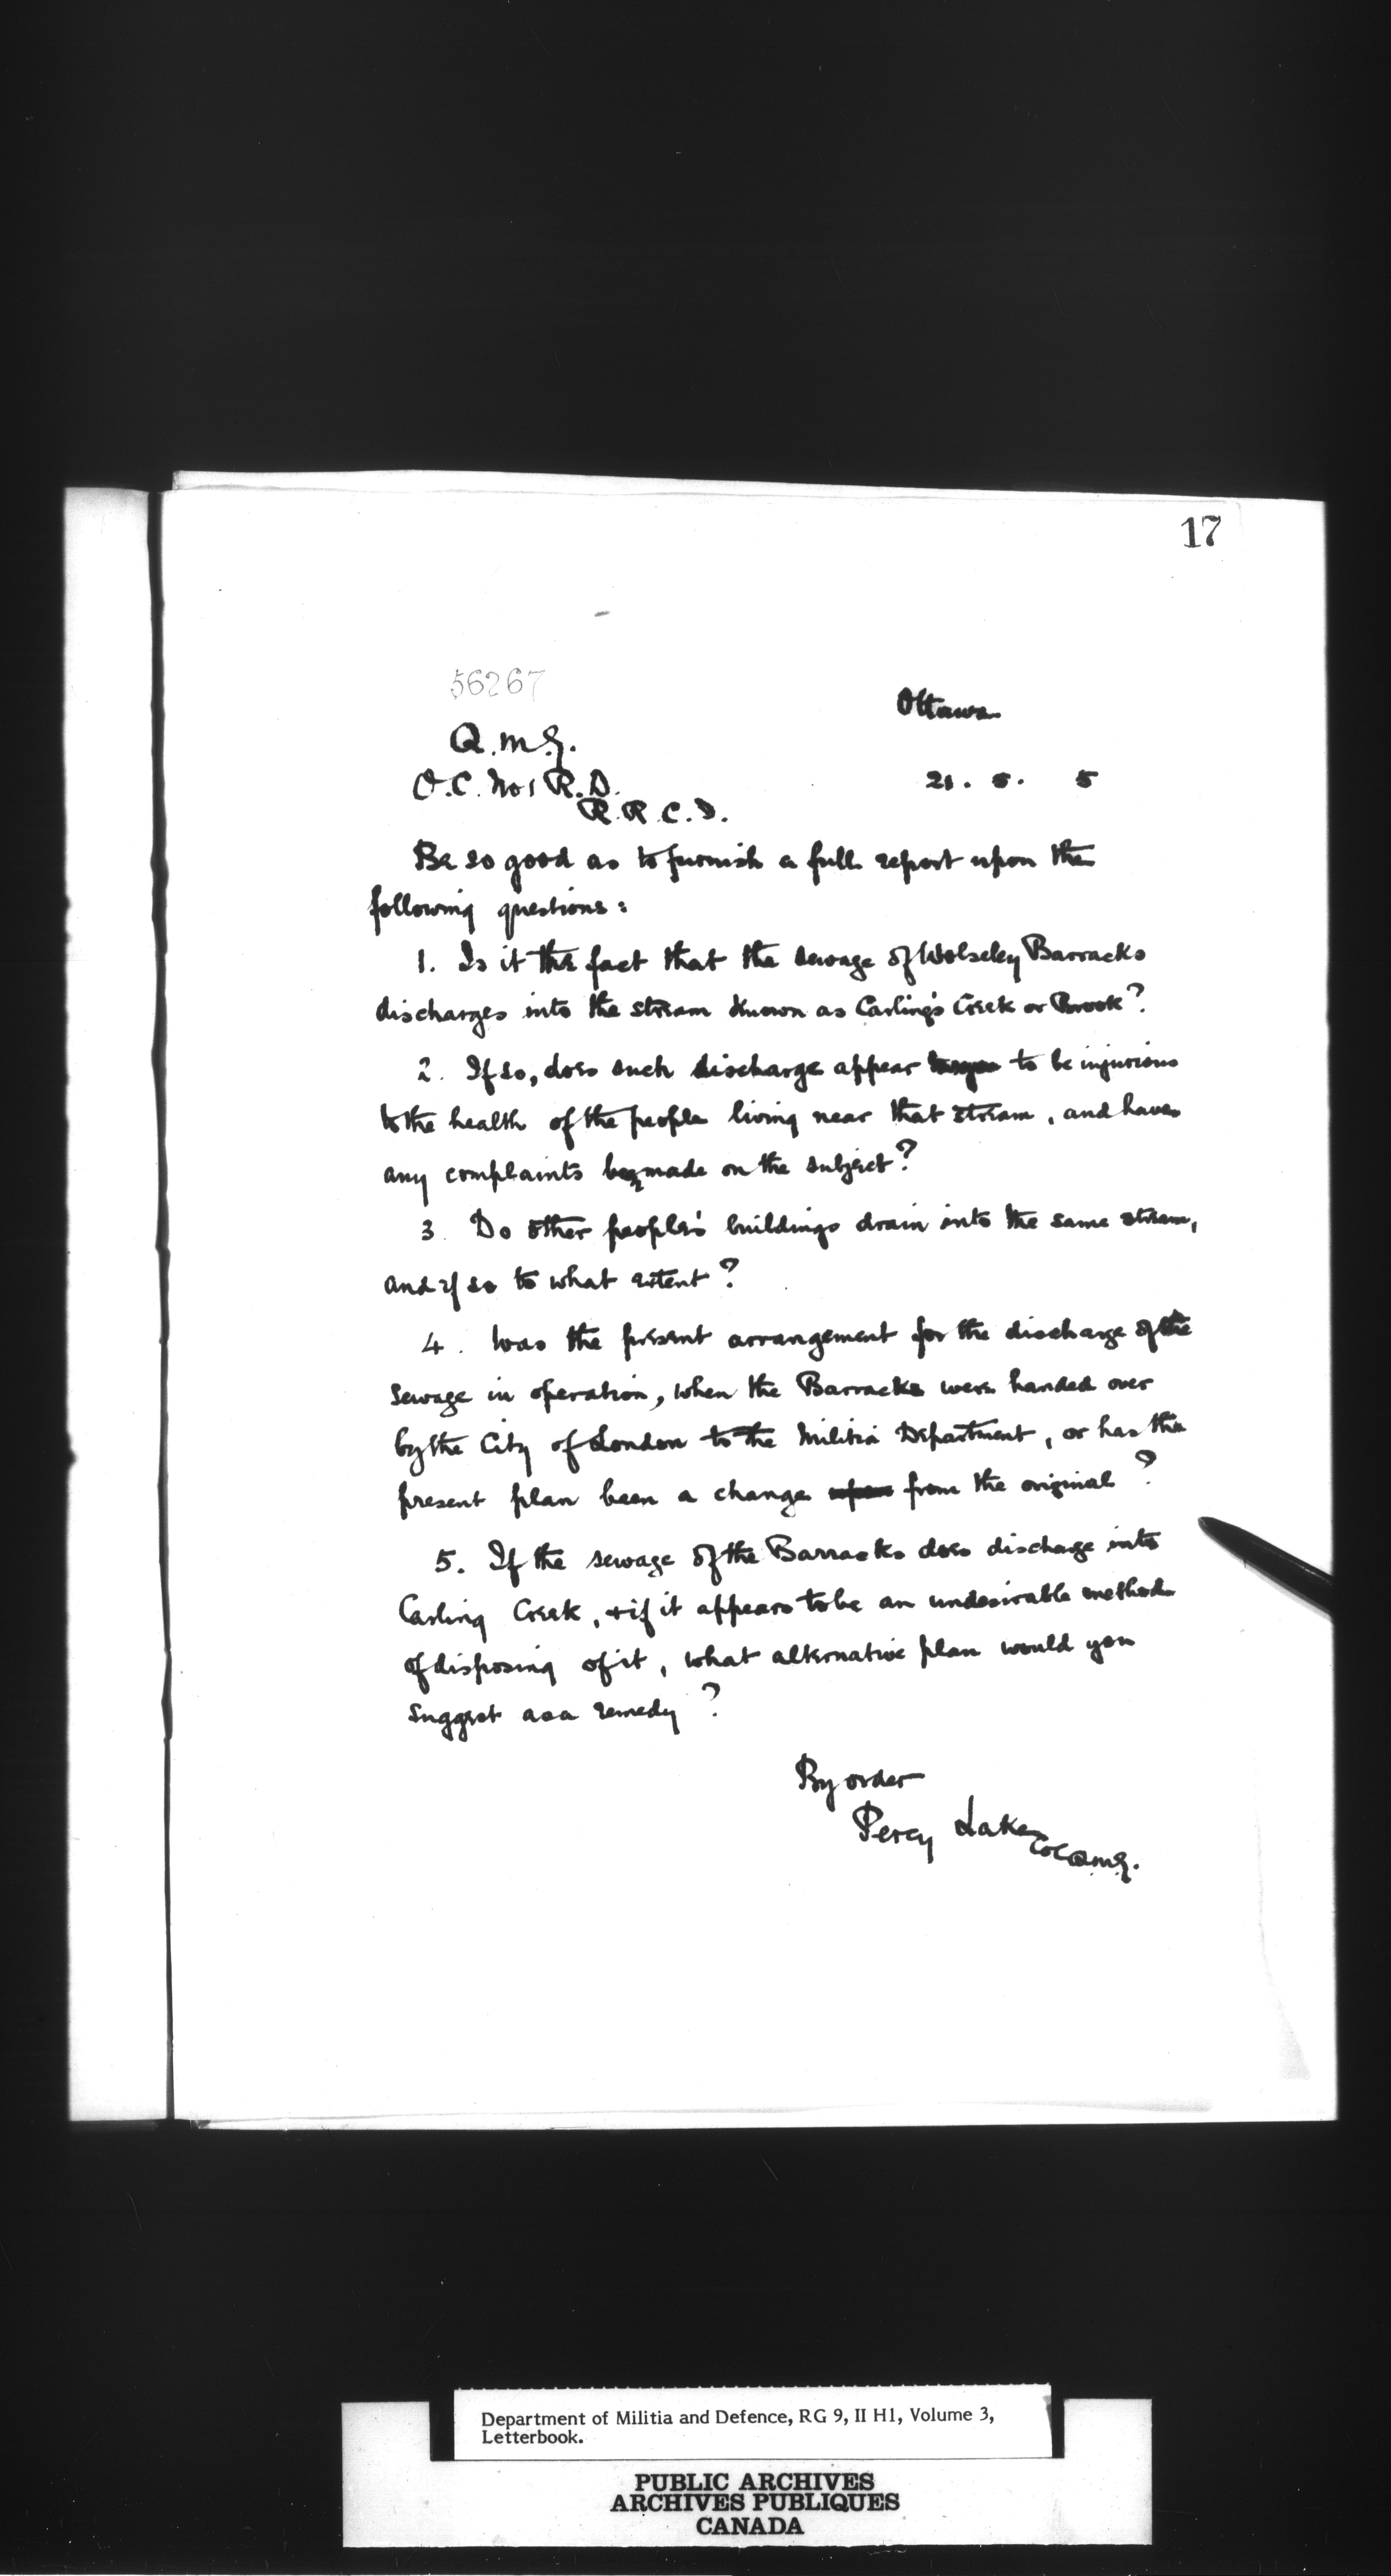 17
56267
Ottawa
Q.M.G.
O.C. No 1 R.D.
21. 5. 5
R.R.C.D.
Be so good as to furnish a full report upon the
following questions:
1. Is it the fact that the sewage of Wolseley Barracks
discharges into the stream known as Carling's Creek or Brook?
2. If so, does such discharge appear to be injurious
to the health of the people living near that stream, and have
any complaints been made on the subject?
3. Do other people's buildings drain into the same stream,
and if so to what extent?
4. Was the present arrangement for the discharge of the
sewage in operation, when the Barracks were handed over
by the City of London to the Militia Department, or has the
present plan been a change upon from the original?
5. If the sewage of the Barracks does discharge into
Carling Creek, & if it appears to be an undesirable method
of disposing of it, what alternative plan would you
suggest as a remedy?
By order
Percy Lake Col QMG.
Department of Militia and Defence, RG 9, II H1, Volume 3,
Letterbook.
PUBLIC ARCHIVES
ARCHIVES PUBLIQUES
CANADA